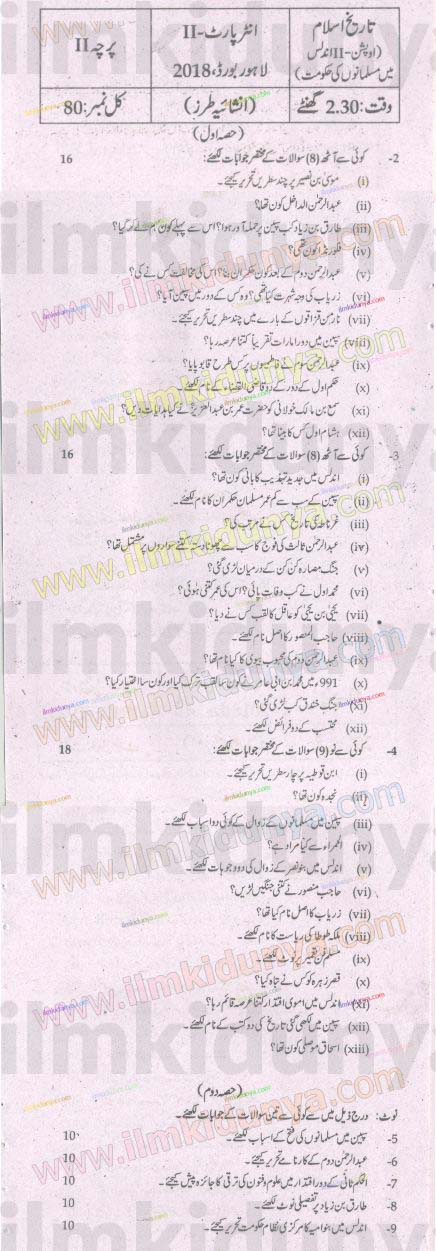 تاریخ اسلام
(اوپشن-II اندلس
میں مسلمانوں کی حکومت)
انٹر پارٹ-II
لاہور بورڈ، 2018
پرچہ II
وقت: 2.30 گھنٹے
(انشائیہ طرز)
کل نمبر: 80
(حصہ اول)
2- کوئی سے آٹھ (8) سوالات کے مختصر جوابات لکھئے: 16
(i) موسیٰ بن نصیر پر چند سطریں تحریر کیجئے۔
(ii) عبدالرحمٰن الداخل کون تھا؟
(iii) طارق بن زیاد کب سپین پر حملہ آور ہوا؟ اس سے پہلے کون مہم لے کر گیا؟
(iv) فلورنڈا کون تھی؟
(v) عبدالرحمٰن دوم کے بعد کون حکمران بنا؟ اس کی مخالفت کس نے کی؟
(vi) زریاب کی وجہ شہرت کیا تھی؟ وہ کس کے دور میں سپین آیا؟
(vii) نارمن قزاقوں کے بارے میں چند سطریں تحریر کیجئے۔
(viii) سپین میں دور امارات تقریباً کتنا عرصہ رہا؟
(ix) عبدالرحمٰن سوم نے فاطمیوں پر کس طرح قابو پایا؟
(x) حکم اول کے دور کے دو قاضی القضاء کے نام لکھئے۔
(xi) سمح بن مالک خولانی کو حضرت عمر بن عبدالعزیز نے کیا ہدایات دیں؟
(xii) ہشام اول کس کا بیٹا تھا؟
3- کوئی سے آٹھ (8) سوالات کے مختصر جوابات لکھئے: 16
(i) اندلس میں جدید تہذیب کا بانی کون تھا؟
(ii) سپین کے سب سے کم عمر مسلمان حکمران کا نام لکھئے۔
(iii) غرناطہ کی تاریخ کس نے مرتب کی؟
(iv) عبدالرحمٰن ثالث کی فوج کا سب سے چھوٹا دستہ کتنے سواروں پر مشتمل تھا؟
(v) جنگ مصارہ کن کن کے درمیان لڑی گئی؟
(vi) محمد اول نے کب وفات پائی؟ اس کی عمر کتنی ہوئی؟
(vii) یحییٰ بن یحییٰ کو عاقل کا لقب کس نے دیا؟
(viii) حاجب المنصور کا اصل نام لکھئے۔
(ix) عبدالرحمٰن دوم کی محبوب بیوی کا کیا نام تھا؟
(x) 991ء میں محمد بن ابی عامر نے کون سا لقب ترک کیا اور کون سا اختیار کیا؟
(xi) جنگ خندق کب لڑی گئی؟
(xii) محتسب کے دو فرائض لکھئے۔
4- کوئی سے نو (9) سوالات کے مختصر جوابات لکھئے: 18
(i) ابن قوطیہ پر چار سطریں تحریر کیجئے۔
(ii) نجدہ کون تھا؟
(iii) سپین میں مسلمانوں کے زوال کے کوئی دو اسباب لکھئے۔
(iv) الحمراء سے کیا مراد ہے؟
(v) اندلس میں بنو نصر کے زوال کی دو وجوہات لکھئے۔
(vi) حاجب منصور نے کتنی جنگیں لڑیں؟
(vii) زریاب کا اصل نام کیا تھا؟
(viii) ملکہ طوطا کی ریاست کا نام لکھئے۔
(ix) مسلم فن تعمیر پر نوٹ لکھئے۔
(x) قصر زہرہ کو کس نے تباہ کیا؟
(xi) اندلس میں اموی اقتدار کتنا عرصہ قائم رہا؟
(xii) سپین میں لکھی گئی تاریخ کی دو کتب کے نام لکھئے۔
(xiii) اسحاق موصلی کون تھا؟
(حصہ دوم)
نوٹ: درج ذیل میں سے کوئی سے تین سوالات کے جوابات لکھئے۔
5- سپین میں مسلمانوں کی فتح کے اسباب لکھئے۔ 10
6- عبدالرحمٰن دوم کے کارنامے تحریر کیجئے۔ 10
7- الحکم ثانی کے دور اقتدار میں علوم و فنون کی ترقی کا جائزہ پیش کیجئے۔ 10
8- طارق بن زیاد پر تفصیلی نوٹ لکھئے۔ 10
9- اندلس میں بنو امیہ کا مرکزی نظام حکومت تحریر کیجئے۔ 10
ilmkidunya.com
www.ilmkidunya.com